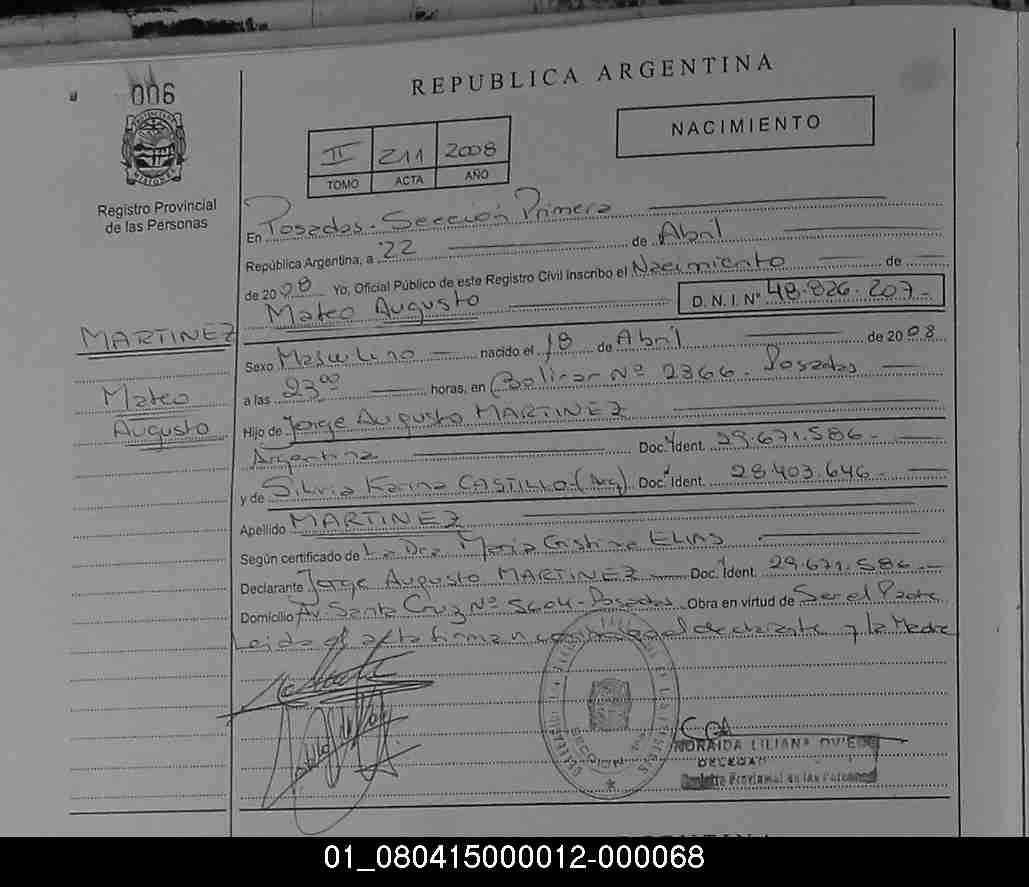 006
REPUBLICA ARGENTINA
NACIMIENTO
II 211 2008
TOMO ACTA AÑO
Registro Provincial
de las Personas
En Posadas. Sección Primera
República Argentina, a 22 de Abril
de 2008 Yo, Oficial Público de este Registro Civil Inscribo el Nacimiento de
Mateo Augusto D.N.I. Nº 48.826.207.-
MARTINEZ
Mateo
Augusto
Sexo Masculino nacido el 18 de Abril de 2008
a las 23⁰⁰ horas, en Bolivar Nº 2366. Posadas
Hijo de Jorge Augusto MARTINEZ
Argentina Doc. Ident. 29.671.586.-
y de Silvia Karina CASTILLO (Arg) Doc. Ident. 28.403.646.-
Apellido MARTINEZ
Según certificado de La Dra Maria Cristina ELIAS
Declarante Jorge Augusto MARTINEZ Doc. Ident. 29.671.586.-
Domicilio Av. Santa Cruz Nº 5604. Posadas Obra en virtud de Ser el Padre
Leida el acta firman conmigo el declarante y la Madre
SECCION
NORAIDA LILIANA
Registro Provincial de las Personas
01_080415000012-000068